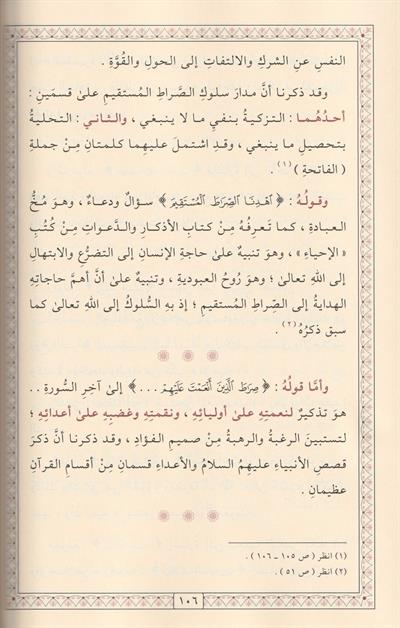 النفسِ عنِ الشركِ والالتفاتِ إلى الحولِ والقُوَّةِ .
وقد ذكرنا أنَّ مدارَ سلوكِ الصِّراطِ المُستقيمِ علىٰ قسمَينِ :
أحدُهُما : التزكيةُ بنفيِ ما لا ينبغي ، والثاني : التحليةُ
بتحصيلِ ما ينبغي ، وقدِ اشتملَ عليهِما كلمتانِ مِنْ جملةِ
( الفاتحةِ )(١) .
وقولُهُ : ﴿ ٱهْدِنَا ٱلصِّرَٰطَ ٱلْمُسْتَقِيمَ ﴾ سؤالٌ ودعاءٌ ، وهوَ مُخُّ
العبادةِ ، كما تَعرِفُهُ مِنْ كتابِ الأذكارِ والدَّعواتِ مِنْ كُتُبِ
« الإحياءِ » ، وهوَ تنبيهٌ علىٰ حاجةِ الإنسانِ إلى التضرُّعِ والابتهالِ
إلى اللهِ تعالىٰ ؛ وهوَ رُوحُ العبوديةِ ، وتنبيهٌ علىٰ أنَّ أهمَّ حاجاتِهِ
الهدايةُ إلى الصِّراطِ المُستقيمِ ؛ إذ بهِ السُّلوكُ إلى اللهِ تعالىٰ كما
سبق ذكرُهُ(٢) .
وأمَّا قولُهُ : ﴿ صِرَٰطَ ٱلَّذِينَ أَنْعَمْتَ عَلَيْهِمْ ... ﴾ إلىٰ آخِرِ السُّورةِ ..
هوَ تذكيرٌ لنعمتِهِ علىٰ أوليائِهِ ، ونقمتِهِ وغضبِهِ علىٰ أعدائِهِ ؛
لتستبينَ الرغبةُ والرهبةُ مِنْ صميمِ الفؤادِ ، وقد ذكرنا أنَّ ذكرَ
قصصِ الأنبياءِ عليهِمُ السلامُ والأعداءِ قسمانِ مِنْ أقسامِ القرآنِ
عظيمانِ .
(١) انظر ( ص ١٠٥ ــ ١٠٦ ) .
(٢) انظر ( ص ٥١ ) .
١٠٦